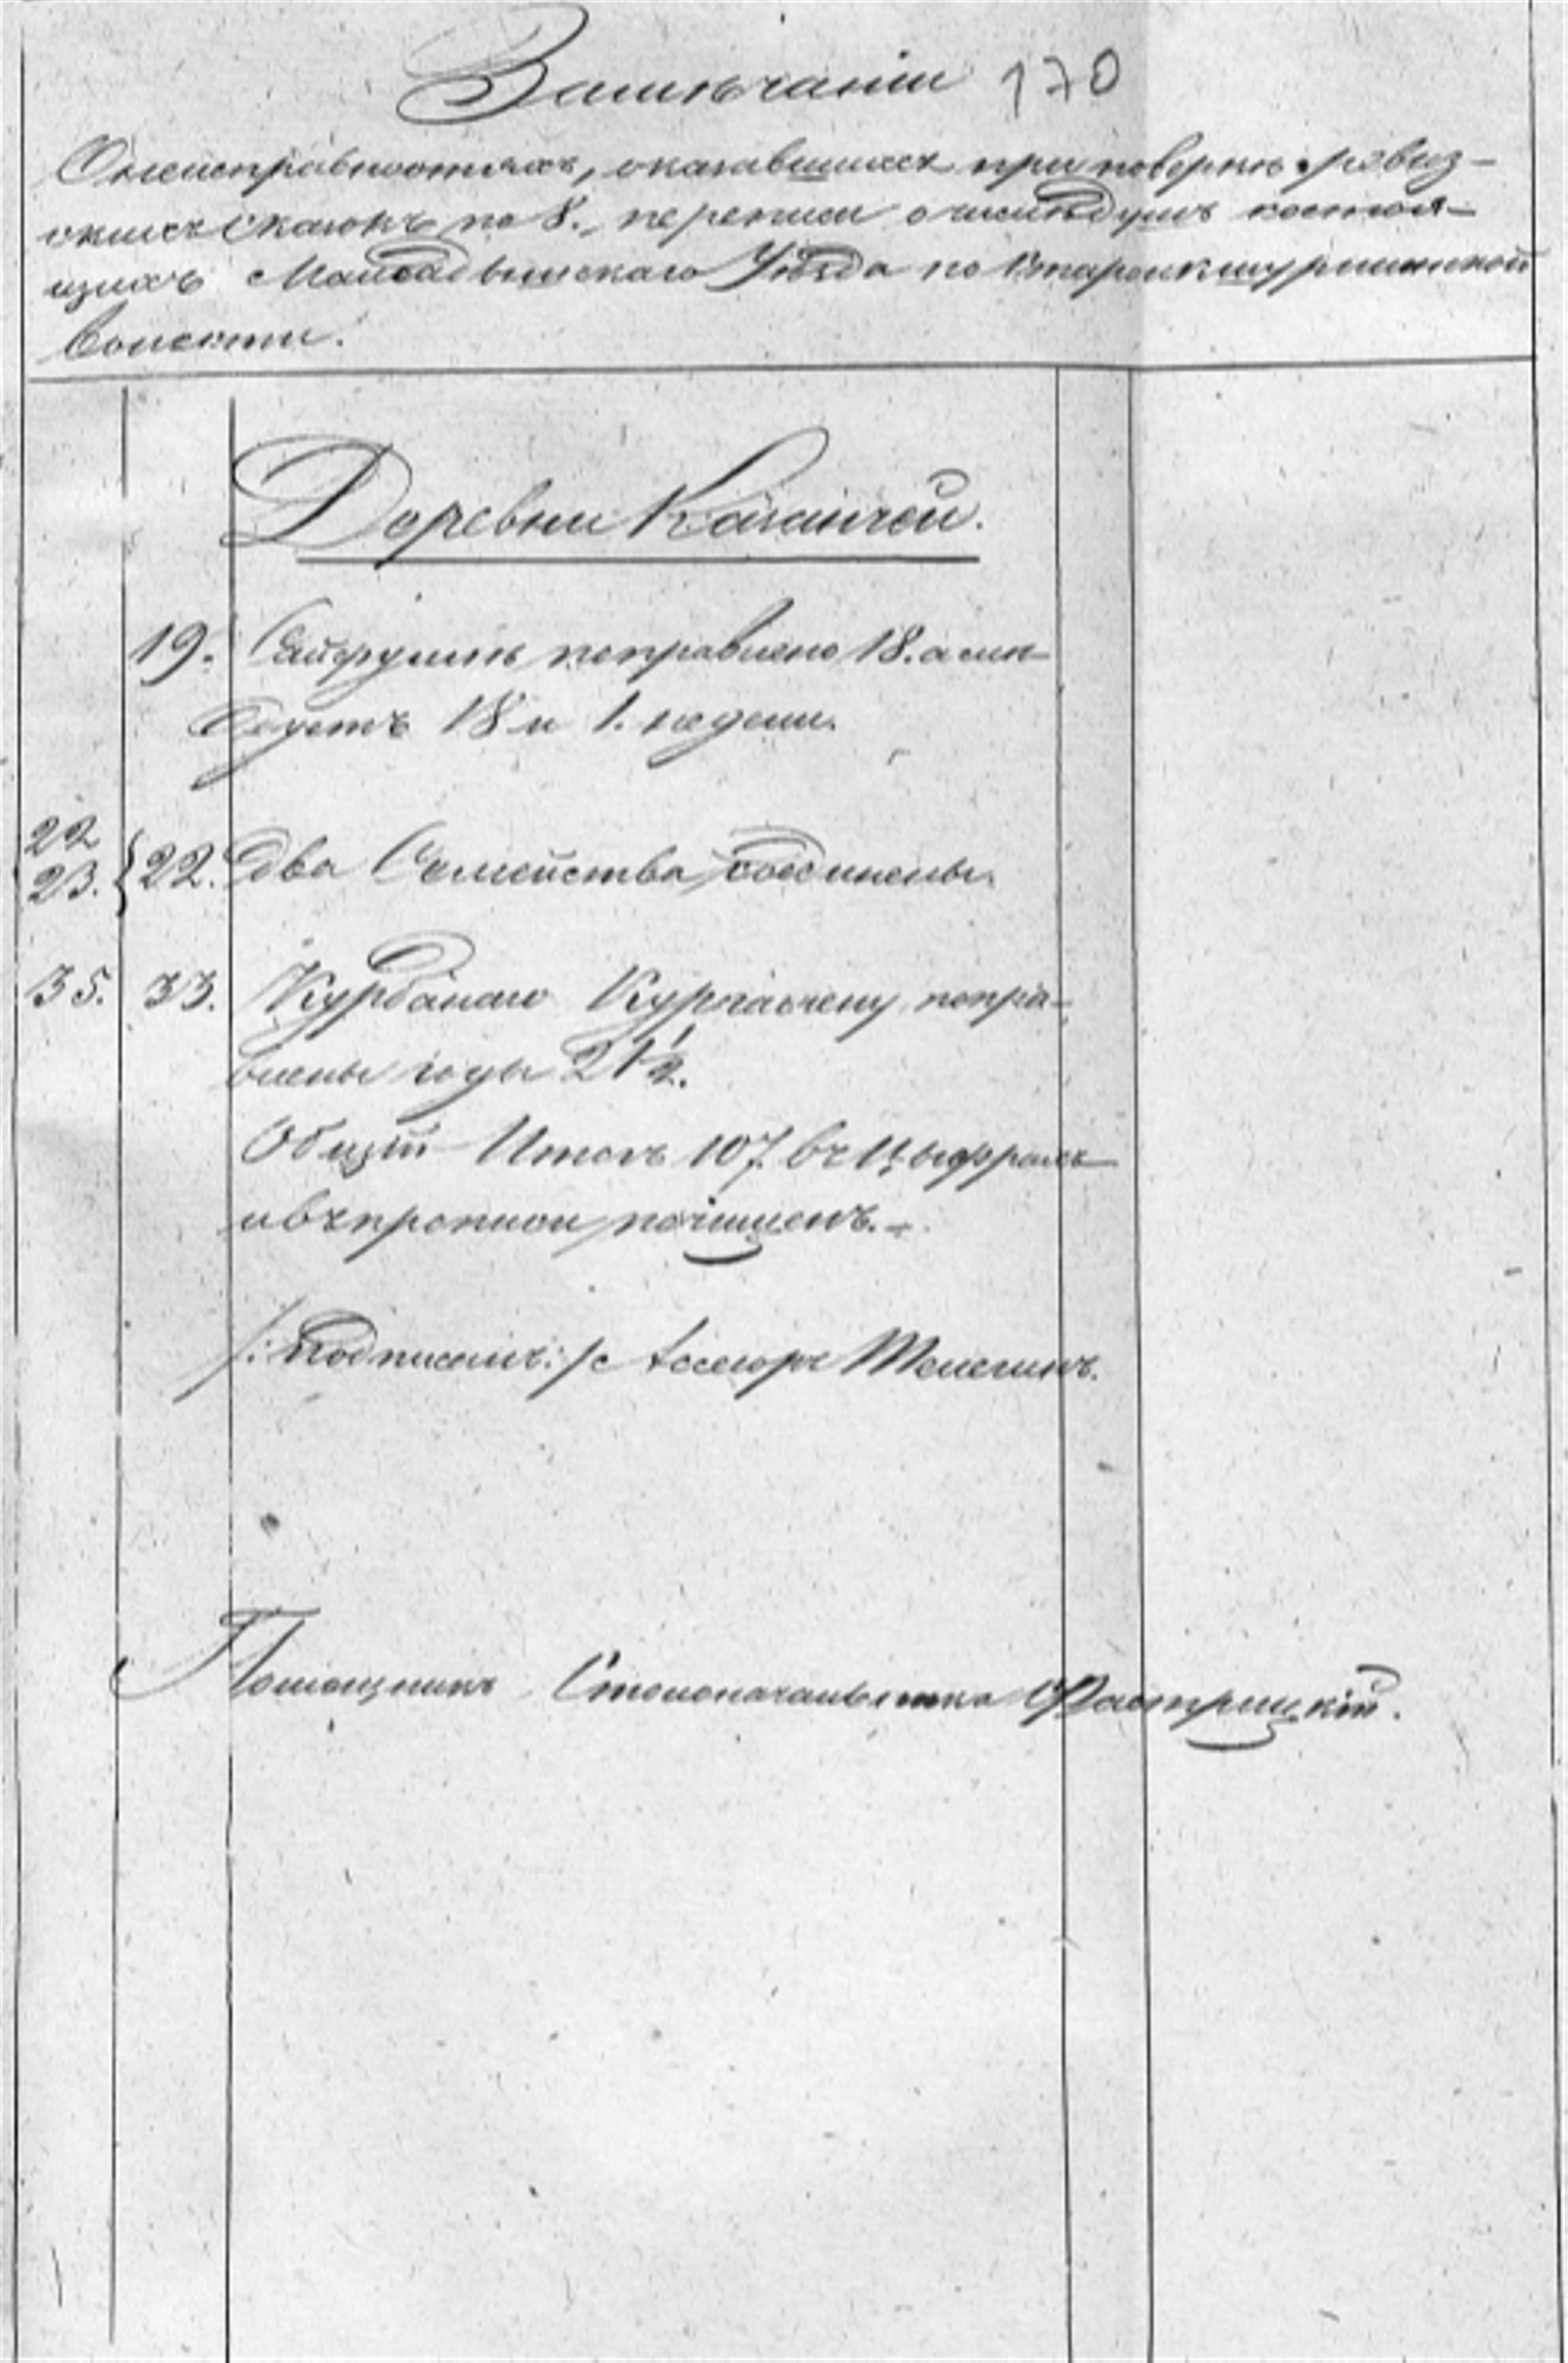 Замѣчаніи 170
О неисправностяхъ, оказавшихся при повѣркѣ ревиз-
скихъ сказокъ по 8. переписи о числѣ душъ состоя-
щихъ Мамадышскаго Уѣзда по Старо
волости.
Деревни Казанчей.
19. Сайфуллѣ поправлено 18. а слѣ-
дуетъ 18 и 1. недели.
22
23. } 22. два Семейства соединены.
35. 33. Курбанаю Кургашеву попра-
влены годы 21½.
Общій Итогъ 107. въ Цыфрахъ
и въ прописи почищенъ.
/: подписалъ: /с Асесоръ Телегинъ.
Помощникъ Столоначальника